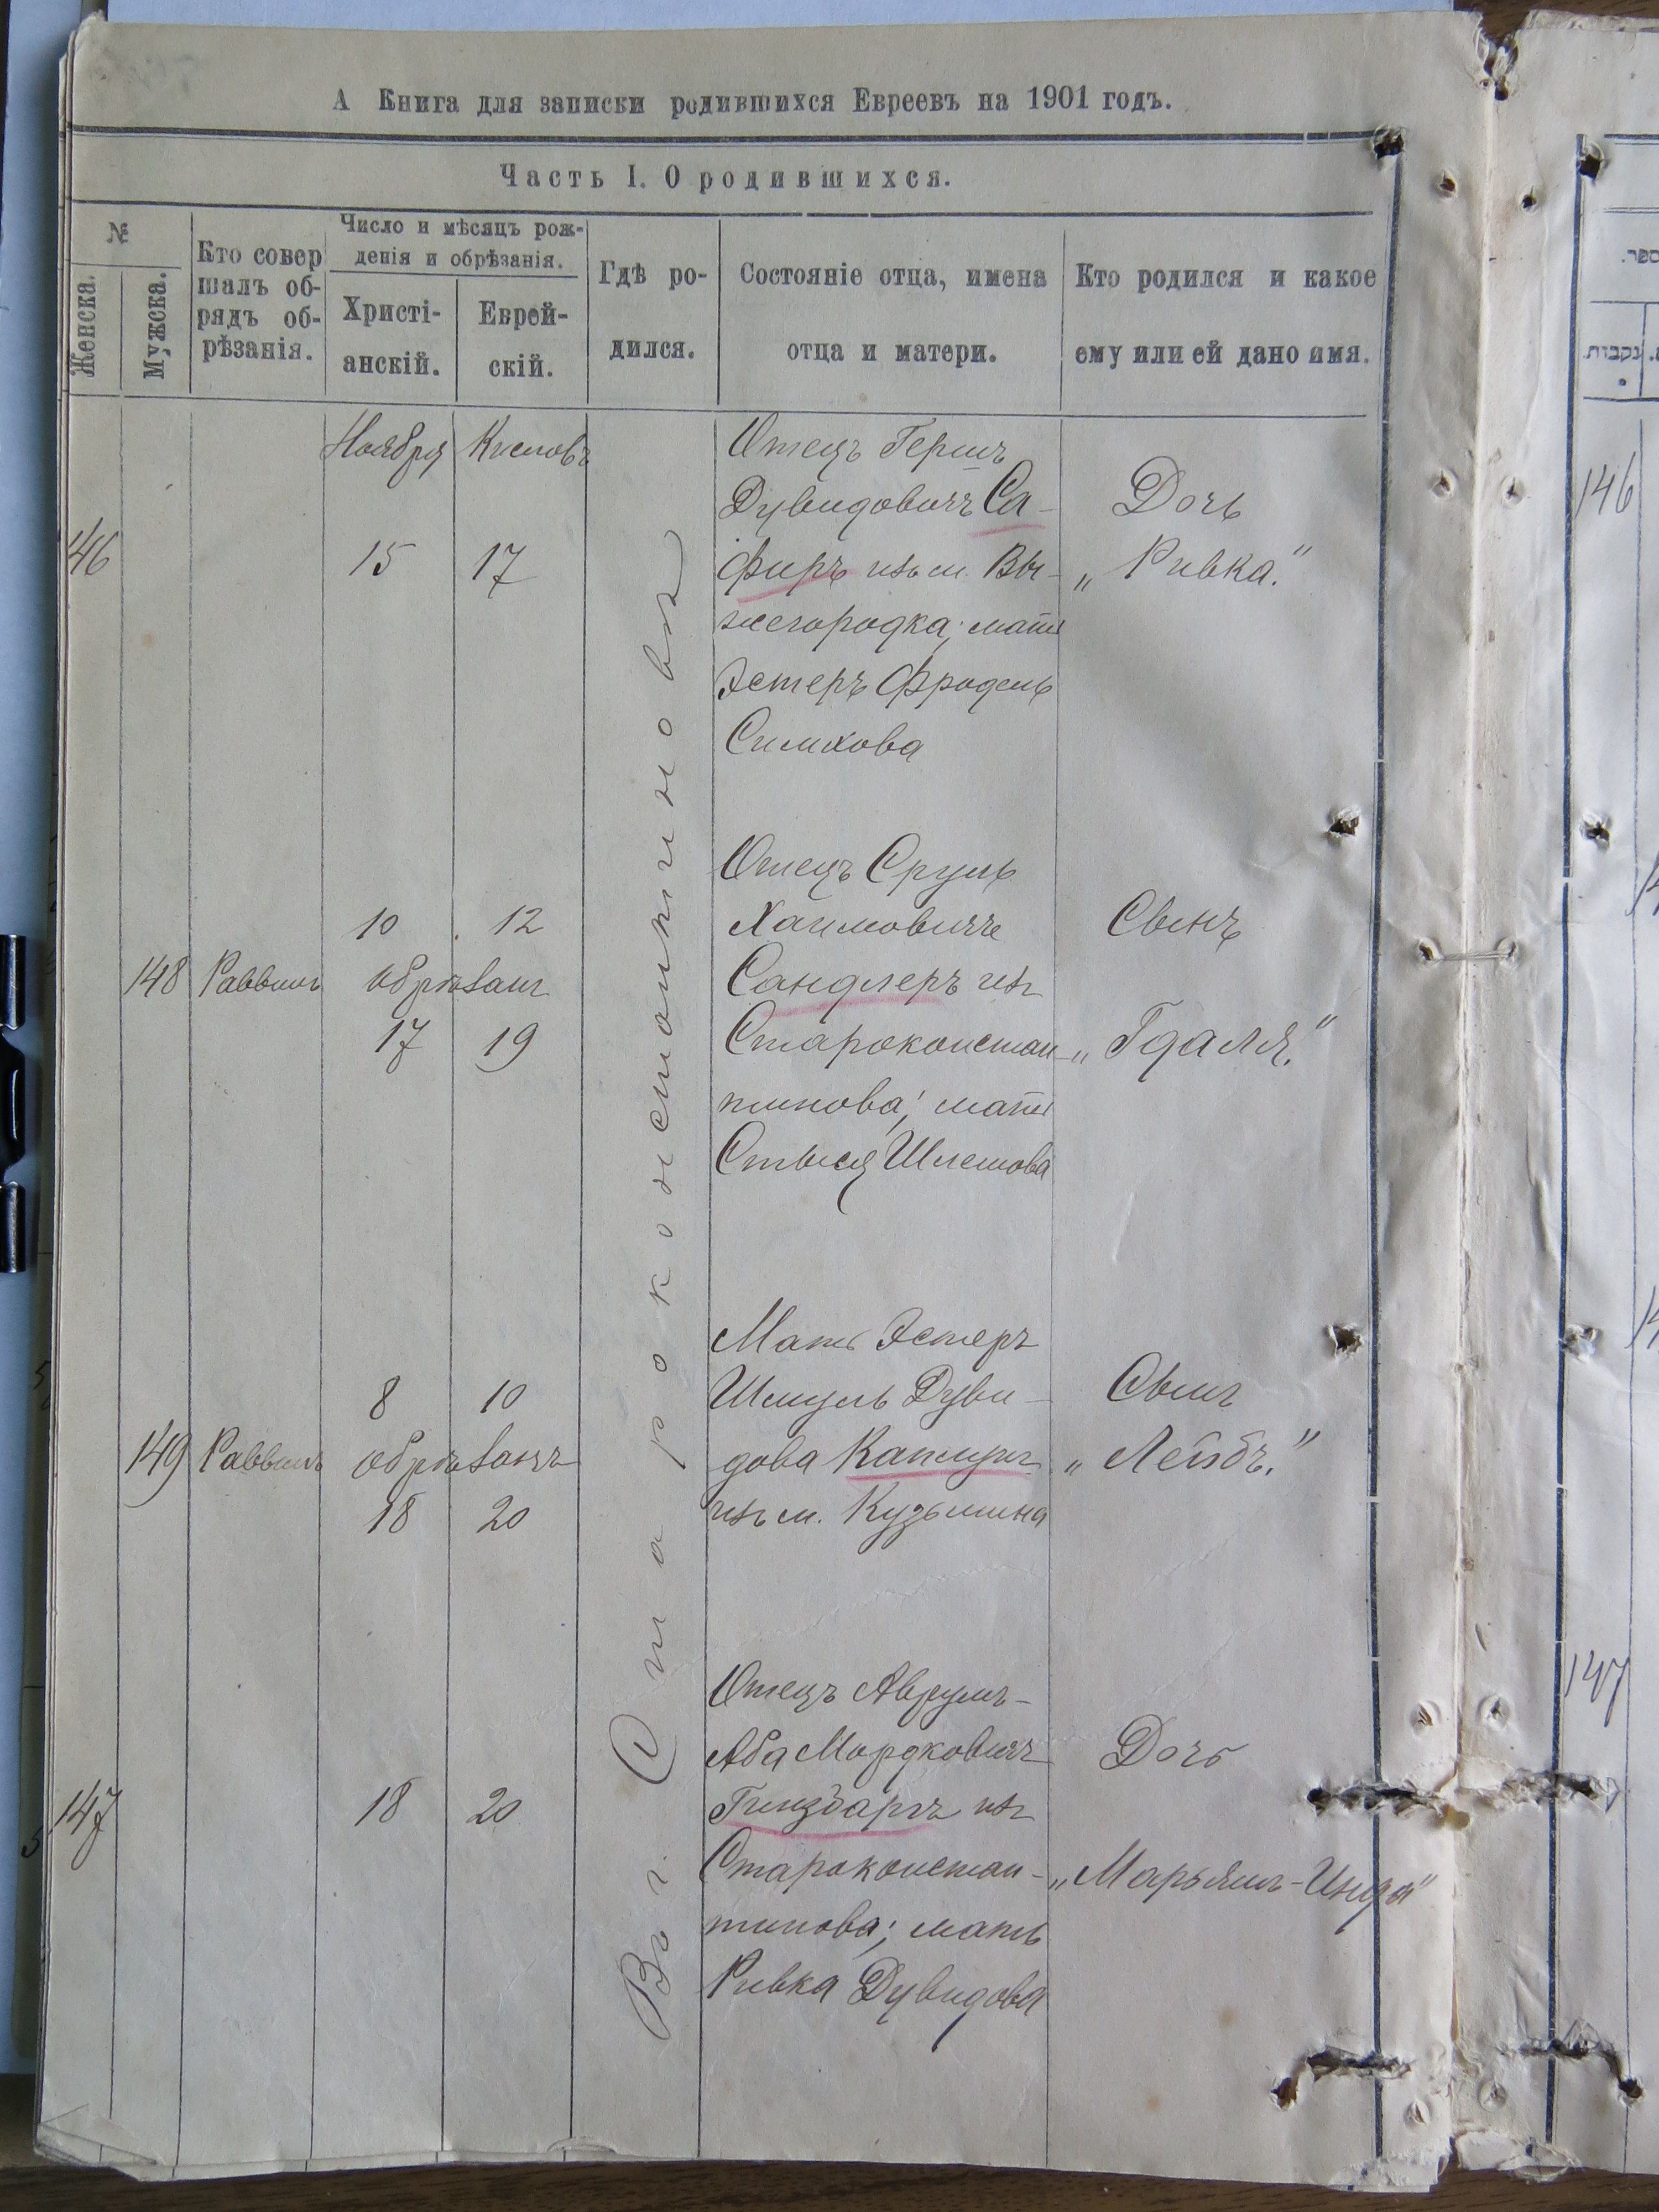 А Книга для записки родившихся Евреевъ на 1901 годъ.
Часть I. О родившихся.
№
Женска.
Мужска.
Кто совер
шалъ об-
рядъ об-
рѣзанія.
Число и мѣсяцъ рож-
денія и обрѣзанія.
Христі-
анскій.
Еврей-
скій.
Гдѣ ро-
дился.
Состояніе отца, имена
отца и матери.
Кто родился и какое
ему или ей дано имя.
Въ г. Староконстантиновѣ
Ноября Кислевъ
146 15 17
Отецъ Гершъ
Дувидовичъ Са-
фиръ изъ м. Вы-
жегородка; мать
Эстеръ Фродель
Симхова
Дочь
„Ривка."
148 Раввинъ
10 12
обрѣзанъ
17 19
Отецъ Сруль
Хаимовичъ
Сандлеръ изъ
Староконстан-
тинова; мать
Стыся
Сынъ
„Гдаля."
149 Раввинъ
8 10
обрѣзанъ
18 20
Мать Эстеръ
Шмуль Дуви-
дова
изъ м. Кузьмина
Сынъ
„Лейбъ."
147 18 20
Отецъ Аврумъ-
Аба Мордковичъ
Гинзбаргъ изъ
Староконстан-
тинова; мать
Ривка Дувидова
Дочь
„Марьямъ-Инда"
146
147
ספר.
נקבות.